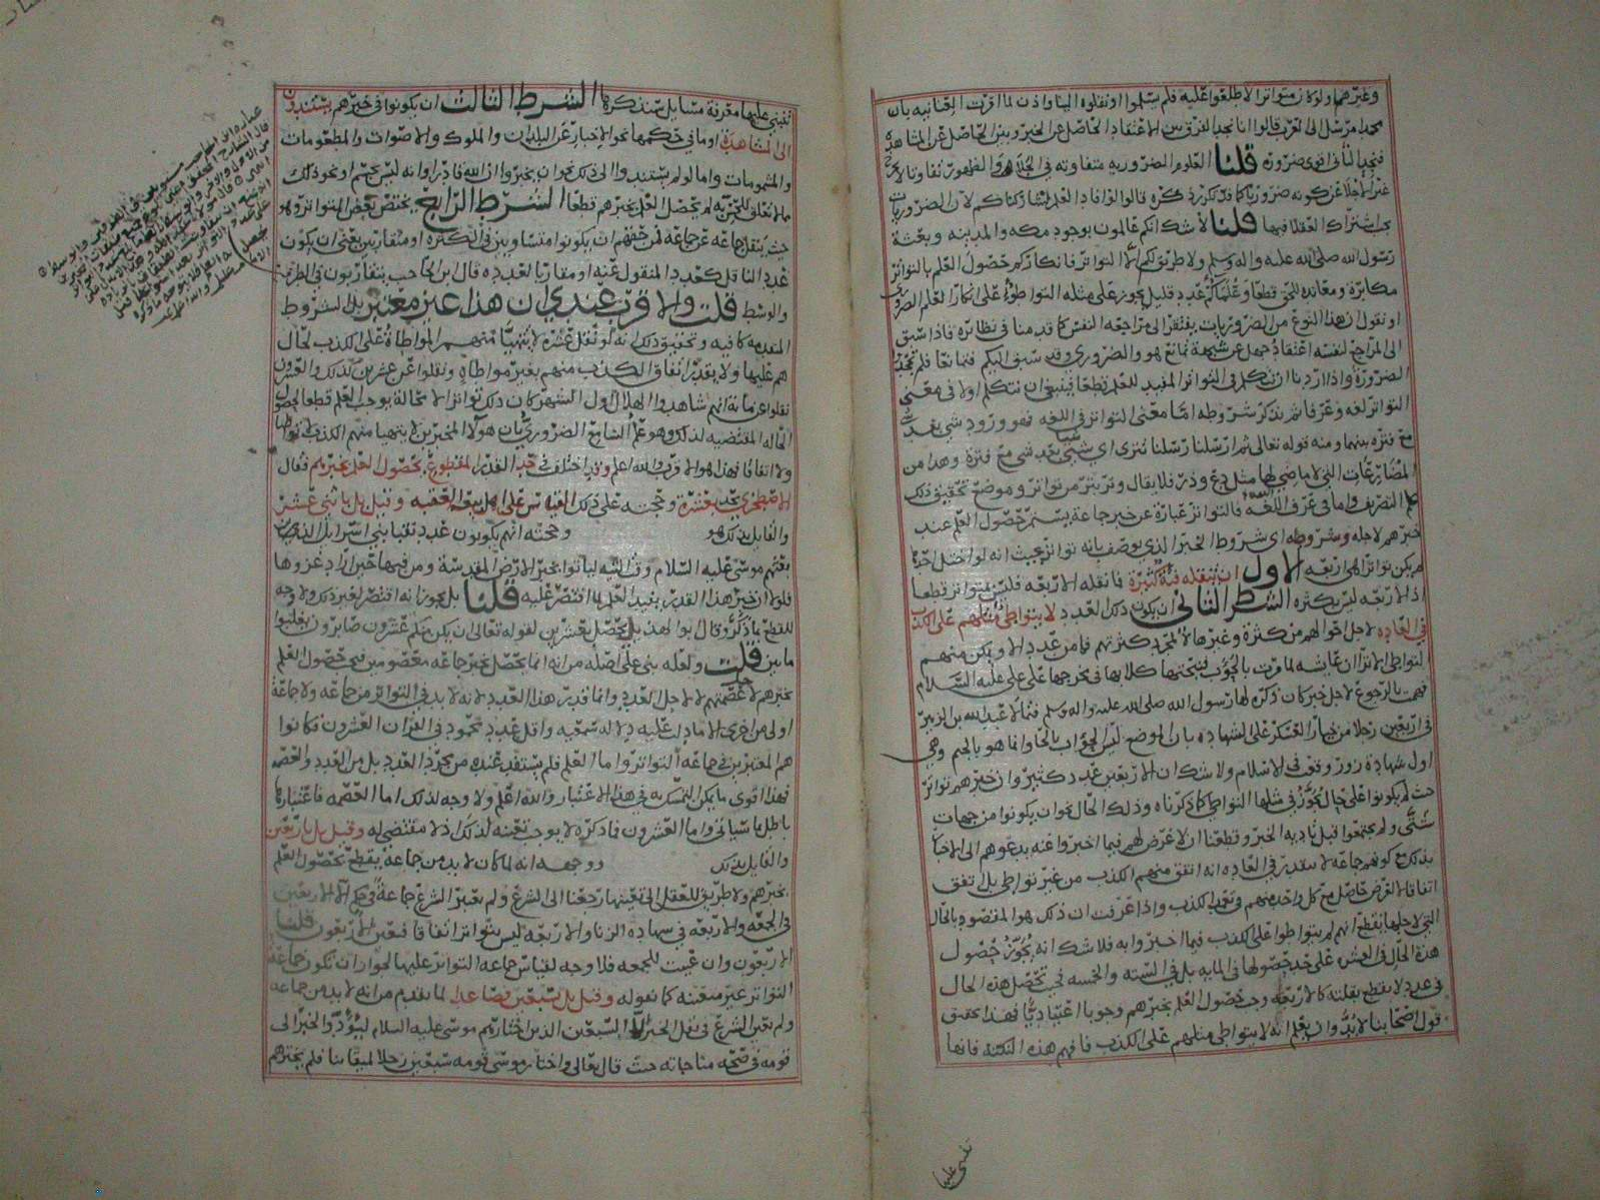 وغيرهما ولو كان متواترا لاطلعوا عليه فلم يسلموا او نقلوه الينا واذن لما اقرت النصارى بان
محمدا مرسل الى العرب قالوا انا نجد الفرق بين الاعتقاد الحاصل عن الخبر وبين الحاصل عن المشاهدة
فنجد الثاني اقوى ضرورة قلنا العلوم الضرورية متفاوته في الجلاء والظهور تفاوتا لا يخرج
غير الاجلا عن كونه ضروريا كما قد تكرر ذكره قالوا لو افاد العلم لشاركناكم لان الضروريات
يجب اشتراك العقلا فيها قلنا لا شك انكم عالمون بوجود مكه والمدينه وبعثة
رسول الله صلى الله عليه واله وسلم ولا طريق لكم الا التواتر فانكاركم حصول العلم بالتواتر
مكابرة ومعانده للحق قطعا وعلماكم عدد قليل يجوز على مثله التواطؤ على انكار العلم الضروري
او نقول ان هذا النوع من الضروريات يفتقر الى مراجعة النفس كما قدمنا في نظائره فاذا سبق
الى المراجع لنفسه اعتقاد جهل عن شبهة مانع هو والضروري وقد سبق اليكم فمانعا فلم تجدوا
الضرورة واذا اردنا ان نتكلم في التواتر المفيد للعلم قطعا فينبغي ان نتكلم اولا في معنى
التواتر لغه وعرفا ثم نذكر شروطه اما معنى التواتر في اللغه فهو ورود شي بعد شي
مع فترة بينهما ومنه قوله تعالى ثم ارسلنا رسلنا تترى اي شيئا بعد شي مع فترة وهذا من
المضارعات التي لا ماضي لها مثل دع وذر فلا يقال وتر يتر من تواتر وموضع تحقيق ذلك
علم التصريف واما في عرف اللغه فالتواتر عبارة عن خبر جماعة يستمر حصول العلم عند
خبرهم لاجله وشروطه اي شروط الخبر الذي يوصف بانه تواتر بحيث انه لو اختل احدها
لم يكن تواترا هي اربعه الاول ان ينقله فئة كثيرة فما نقله الاربعه فليس بمتواتر قطعا
اذ الاربعه ليس بكثره الشرط الثاني ان يكون ذلك العدد لا يتواطى مثلهم على الكذب
في العاده لاجل احوالهم من كثرة وغيرها لا لمجرد كثرتهم فما من عدد الا ويمكن منهم
التواطى الا ترا ان عايشه لما مرت بالحوب فنبحتها كلابها في مخرجها على علي عليه السلام
فهمت بالرجوع لاجل خبر كان ذكره لها رسول الله صلى الله عليه واله وسلم فتمالا عبد الله بن الزبير
في اربعين رجلا من خيار العسكر على الشهاده بان الموضع ليس الحواب بالحا وانما هو بالجيم وهي
اول شهادة زور وقعت في الاسلام ولا شك ان الاربعين عدد كثير وان خبرهم تواتر
حيث لم يكونوا على حال يجوز في مثلها التواطى كما ذكرناه وذلك الحال نحو ان يكونوا من جهات
شتى ولم يجتمعوا قبل تاديه الخبر وقطعنا ان لا غرض لهم فيما اخبروا عنه يدعوهم الى الاخبار
بذلك مع كونهم جماعه لا يتقدر في العاده انه اتفق منهم الكذب من غير تواطى بل اتفق
اتفاقا لغرض حاصل مع كل واحد منهم في تعمد الكذب واذا عرفت ان ذلك هو المقصود بالحال
التي لاجلها يقطع انهم لم يتواطوا على الكذب فيما اخبروا به فلا شك انه يجوز حصول
هذه الحال في العشره على حد حصولها في المايه بل في السته والخمسه فحيث تحصل هذه الحال
في عدد لا يقطع بقلته كالاربعه وجب حصول العلم بخبرهم وجوبا اعتياديا فهذا تحقيق
قول اصحابنا لا بد وان يعلم انه لا يتواطى مثلهم على الكذب فافهم هذه النكته فانها
ينبني عليها
ينبني عليها معرفة مسايل سنذكرها الشرط الثالث ان يكونوا في خبرهم يستندون
الى المشاهدة او ما في حكمها نحو الاخبار عن البلدان والملوك والاصوات والمطعومات
والمشمومات واما لو لم يستندوا الى ذلك نحو ان يخبروا ان الله قادرا وانه ليس بجسم او نحو ذلك
مما لا تعلق للحس به لم يحصل العلم بخبرهم قطعا الشرط الرابع يختص بعض المتواتر وهو
حيث ينقل جماعه عن جماعه فمن حقهم ان يكونوا متساويين في الكثره او متقاربين بمعنى ان يكون
عدد الناقل كعدد المنقول عنه او مقاربا لعدده قال ابن الحاجب يتقاربون في الطرفين
والوسط قلت والاقرب عندي ان هذا غير معتبر بل الشروط
المتقدمه كافيه وتحقيق ذلك انه لو نقل عشرة لا يتهيا منهم المواطاة على الكذب لحال
هم عليها ولا يقدر اتفاق الكذب منهم بغير مواطاه ونقلوا عن عشرين كذلك والعشرون
نقلوا عن مائة انهم شاهدوا الهلال اول الشهر كان ذلك تواترا لا محالة يوجب العلم قطعا لحصول
الحاله المقتضيه لذلك وهو علم السامع الضروري بان هولا المخبرين لا يتهيا منهم الكذب لا تواطيا
ولا اتفاقا فهذا هو الاقرب والله اعلم وقد اختلف في حد القدر المقطوع بحصول العلم بخبرهم فقال
الاصطخري يحد بعشرة وحجته على ذلك القياس على اهل بيعة العقبه وقيل بل باثني عشر
والقايل بذلك هو وحجته انهم يكونون عدد نقبا بني اسرائيل الذين
بعثهم موسى عليه السلام وقت التيه لياتوا بخبر الارض المقدسة ومن فيها حين اراد غزوها
فلولا ان خبر هذا القدر يفيد العلم لما اقتصر عليه قلنا بل يجوز انه اقتصر لغير ذلك ولا وجه
للقطع بما ذكر وقال ابو الهذيل يحصل بعشرين لقوله تعالى ان يكن منكم عشرون صابرون يغلبوا
مايتين قلت ولعله بنى على اصله من انه انما يحصل بخبر جماعه معصومين فيحصل العلم
بخبرهم لاجل عصمتهم لا لاجل العدد وانما قدر هذا العدد لانه لا بد في التواتر من جماعه ولا جماعة
اولى من اخرى الا ما دلت عليه دلاله سمعيه واقل عدد محمود في القران العشرون فكانوا
هم المعتبرين في جماعه التواتر واما العلم فلم يستفد عنده من مجرد العدد بل من العدد والعصمه
فهذا اقوى ما يمكن التمسك به في هذا الاعتبار والله اعلم ولا وجه لذلك اما العصمه فاعتبارها
باطل بما سياتي واما العشرون فما ذكره لا يوجب تعينه لذلك اذ لا مقتضى له وقيل بل باربعين
والقايل بذلك ووجهه انه لما كان لا بد من جماعة يقطع بحصول العلم
بخبرهم ولا طريق للعقل الى تعيينها رجعنا الى الشرع ولم يعتبر الشرع جماعة في حكم الا الاربعين
في الجمعه والاربعه في شهاده الزنا والاربعه ليس بتواتر اتفاقا فتعين الاربعون قلنا
الاربعون وان عينت للجمعه فلا وجه لقياس جماعه التواتر عليها لجواز ان تكون جماعة
التواتر غير متعينه كما نقوله وقيل بل سبعين فصاعدا لما تقدم من انه لا بد من جماعه
ولم يعين الشرع في نقل الخبر الا السبعين الذين اختارهم موسى عليه السلام ليؤدوا الخبر الى
قومه في صحة مناجاته حيث قال تعالى واختار موسى قومه سبعين رجلا لميقاتنا فلم يخبرهم